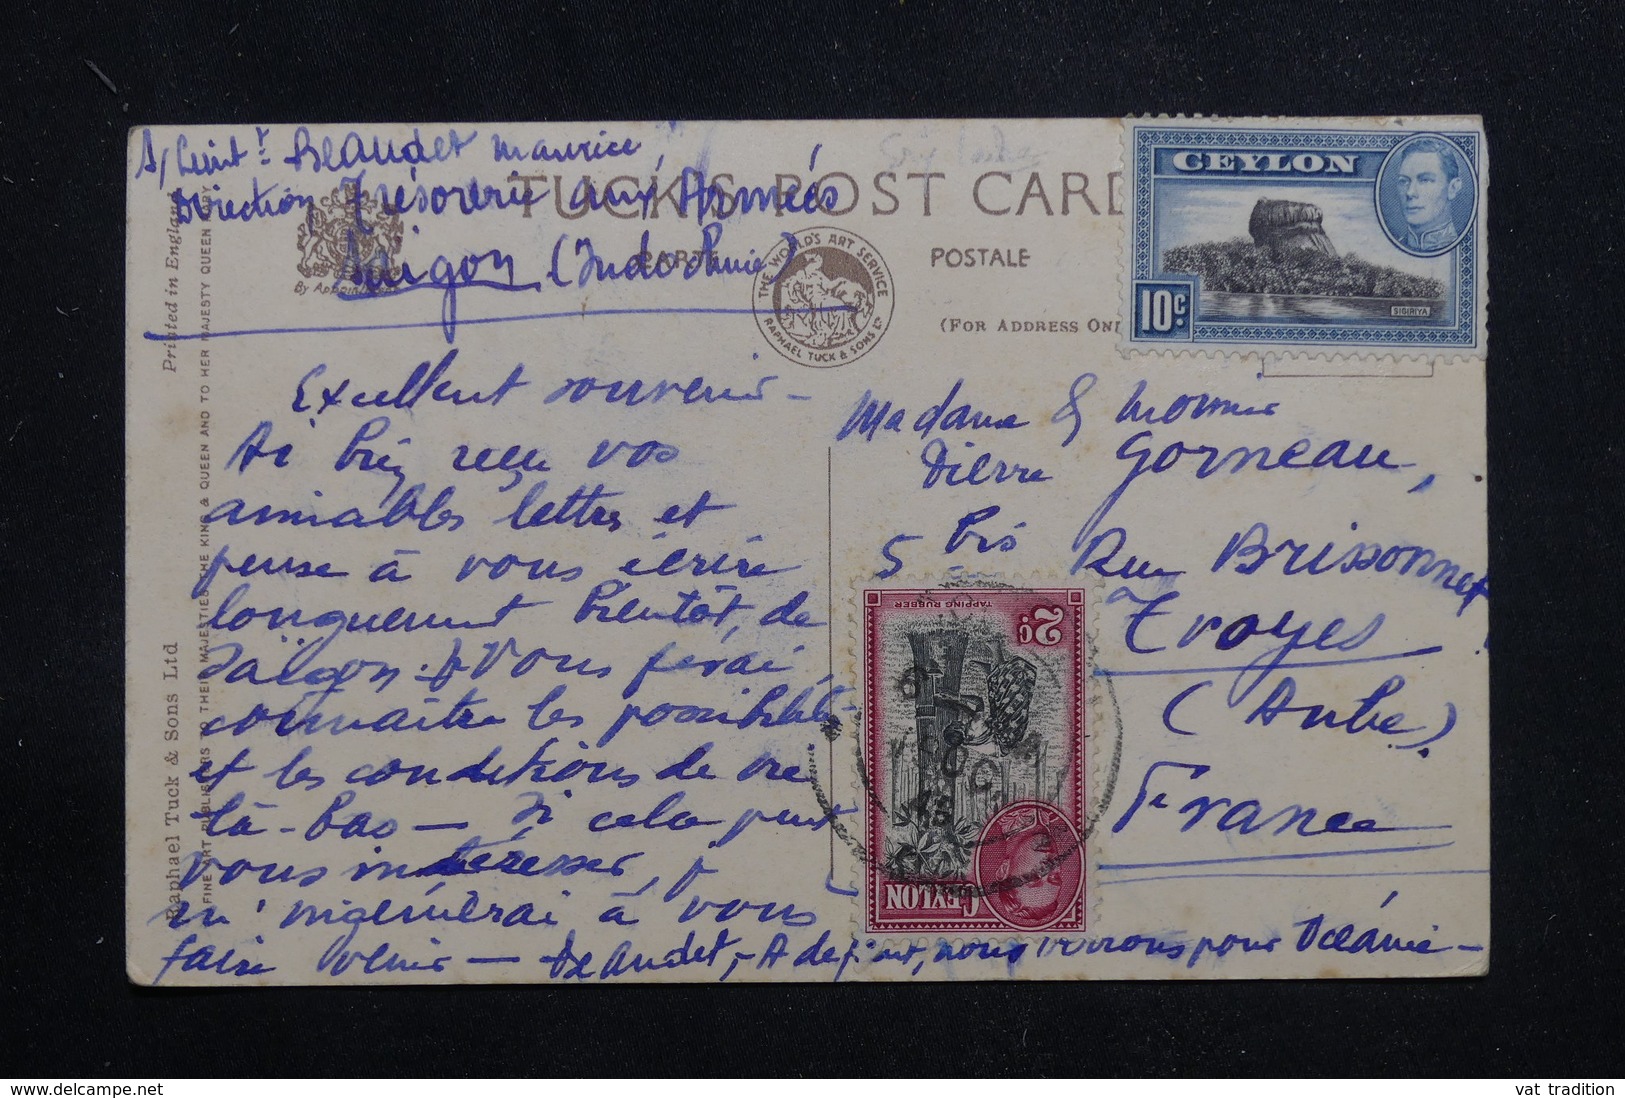 S/Lieut.t Beaudet Maurice,
Direction Trésorerie aux Armées
Saigon (Indochine)
TUCK'S POST CARD
CARTE POSTALE
(FOR ADDRESS ONL
By Appointment
THE WORLD'S ART SERVICE
RAPHAEL TUCK & SONS LTD
CEYLON
10c.
SIGIRIYA
Excellent souvenir -
Ai bien reçu vos
amiables lettres et
pense à vous écrire
longuement bientôt, de
Saïgon. Vous ferai
connaître les possibilités
et les conditions de vie
là-bas - Si cela peut
vous intéresser, j
m'ingénierai à vous
faire venir - Beaudet,-
A défaut, nous verrons pour Océanie -
Madame & Monsieur
Pierre Gorneau,
5 bis Rue Brissonnet
à Troyes
(Aube).
France
TAPPING RUBBER
2c
CEYLON
Printed in England
Raphael Tuck & Sons Ltd
FINE ART PUBLISHERS TO THEIR MAJESTIES THE KING & QUEEN AND TO HER MAJESTY QUEEN MARY
www.delcampe.net
vat_tradition